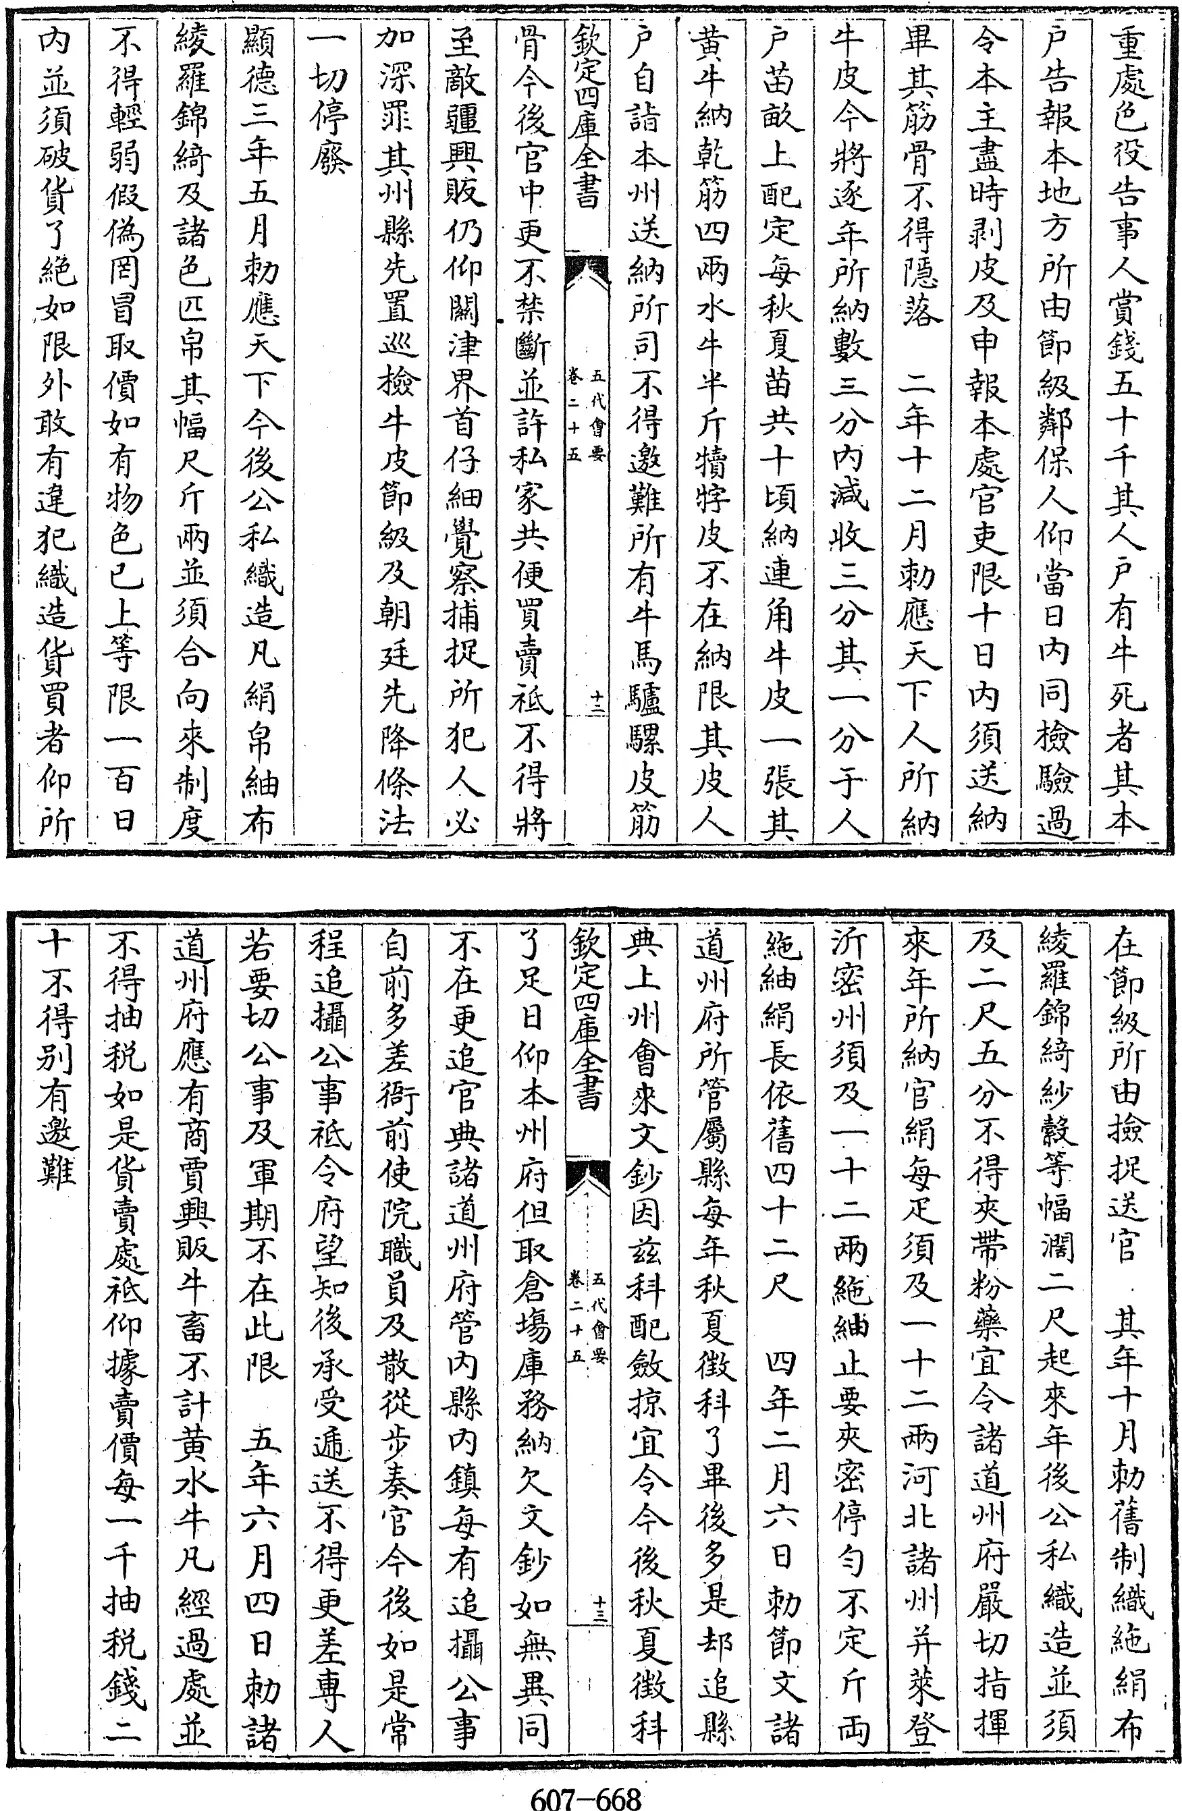 重處色役告事人賞錢五十千其人戸有牛死者其本
戸告報本地方所由節級鄰保人仰當日内同檢驗過
令本主盡時剥皮及申報本處官吏限十日内須送納
畢其筋骨不得隱落　二年十二月勅應天下人所納
牛皮今將逐年所納數三分内減收三分其一分于人
戸苗畝上配定每秋夏苗共十頃納連角牛皮一張其
黄牛納乾筋四兩水牛半斤犢牸皮不在納限其皮人
戸自詣本州送納所司不得邀難所有牛馬驢騾皮筋
欽定四庫全書
五代會要
卷二十五
十二
骨今後官中更不禁斷並許私家共便買賣祗不得將
至敵疆興販仍仰關津界首仔細覺察捕捉所犯人必
加深罪其州縣先置巡檢牛皮節級及朝廷先降條法
一切停廢
顯德三年五月勅應天下今後公私織造凡絹帛紬布
綾羅錦綺及諸色匹帛其幅尺斤兩並須合向來制度
不得輕弱假偽罔冒取價如有物色已上等限一百日
内並須破貨了絶如限外敢有違犯織造貨買者仰所
在節級所由撿捉送官　其年十月勅舊制織絁絹布
綾羅錦綺紗縠等幅濶二尺起來年後公私織造並須
及二尺五分不得夾帶粉藥宜令諸道州府嚴切指揮
來年所納官絹每疋須及一十二兩河北諸州并萊登
沂密州須及一十二兩絁紬止要夾密停勻不定斤兩
絁紬絹長依舊四十二尺　四年二月六日勅節文諸
道州府所管屬縣每年秋夏徴科了畢後多是却追縣
典上州會末文鈔因茲科配斂掠宜令今後秋夏徴科
欽定四庫全書
五代會要
卷二十五
十三
了足日仰本州府但取倉場庫務納欠文鈔如無異同
不在更追官典諸道州府管内縣内鎮每有追攝公事
自前多差衙前使院職員及散從步奏官今後如是常
程追攝公事祗令府望知後承受遞送不得更差專人
若要切公事及軍期不在此限　五年六月四日勅諸
道州府應有商賈興販牛畜不計黄水牛凡經過處並
不得抽税如是貨賣處祗仰據賣價每一千抽税錢二
十不得别有邀難
607-668